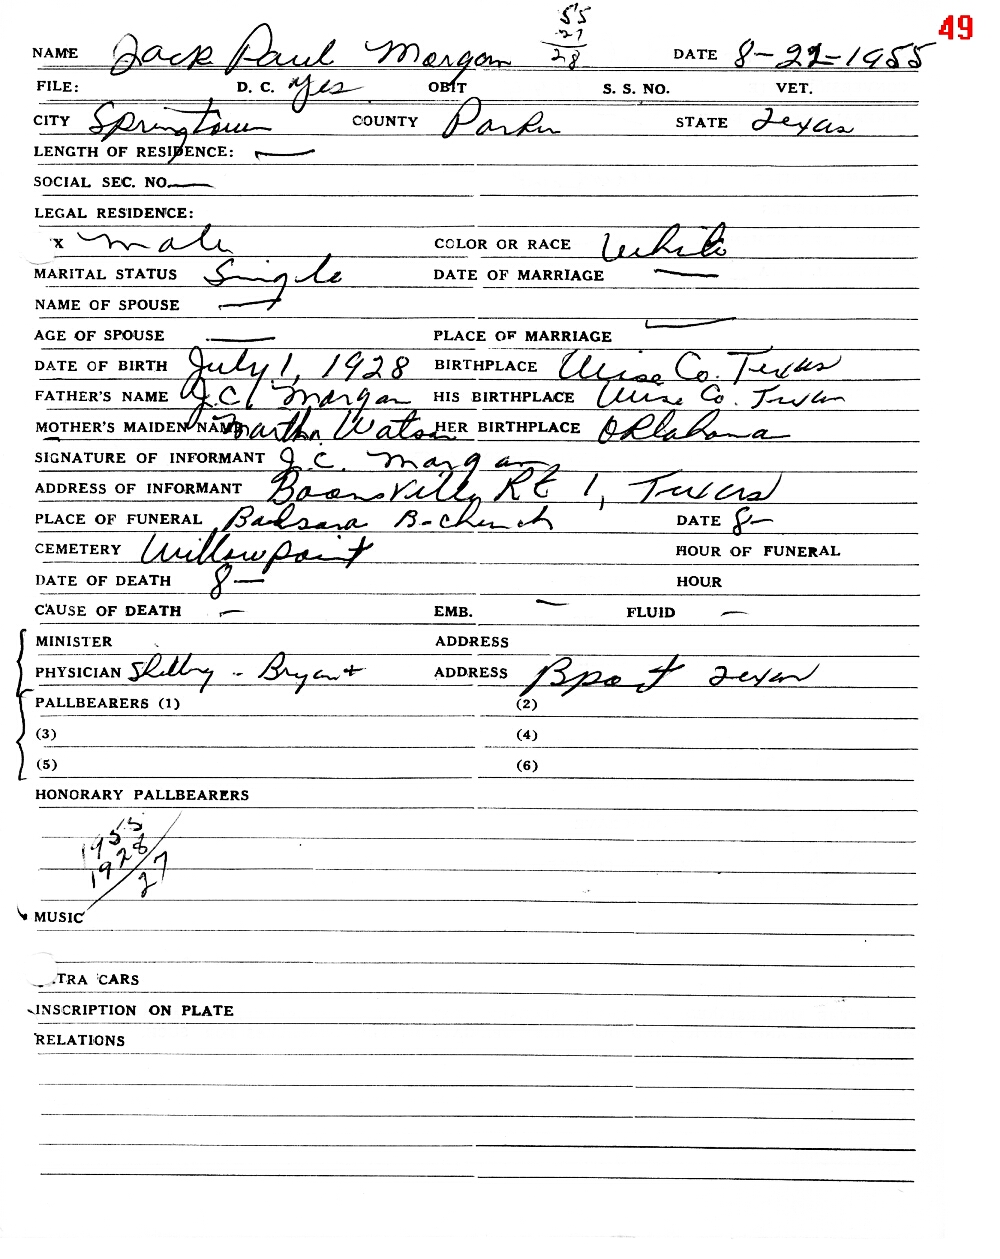 49
55
27
28
NAME Jack Paul Morgan DATE 8-22-1955
FILE: D. C. Yes OBIT S. S. NO. VET.
CITY Springtown COUNTY Parker STATE Texas
LENGTH OF RESIDENCE: —
SOCIAL SEC. NO. —
LEGAL RESIDENCE:
X male COLOR OR RACE White
MARITAL STATUS Single DATE OF MARRIAGE —
NAME OF SPOUSE —
AGE OF SPOUSE — PLACE OF MARRIAGE —
DATE OF BIRTH July 1, 1928 BIRTHPLACE Wise Co. Texas
FATHER'S NAME J.C. Morgan HIS BIRTHPLACE Wise Co. Texas
MOTHER'S MAIDEN NAME Martha Watson HER BIRTHPLACE Oklahoma
SIGNATURE OF INFORMANT J.C. Morgan
ADDRESS OF INFORMANT Boonsville Rt 1, Texas
PLACE OF FUNERAL B-Church DATE 8-
CEMETERY Willowpoint HOUR OF FUNERAL
DATE OF DEATH 8— HOUR
CAUSE OF DEATH — EMB. — FLUID —
MINISTER ADDRESS
PHYSICIAN Shelby - Bryant ADDRESS Bport Texas
PALLBEARERS (1) (2)
(3) (4)
(5) (6)
HONORARY PALLBEARERS
1955
1928
27
MUSIC
TRA CARS
INSCRIPTION ON PLATE
RELATIONS